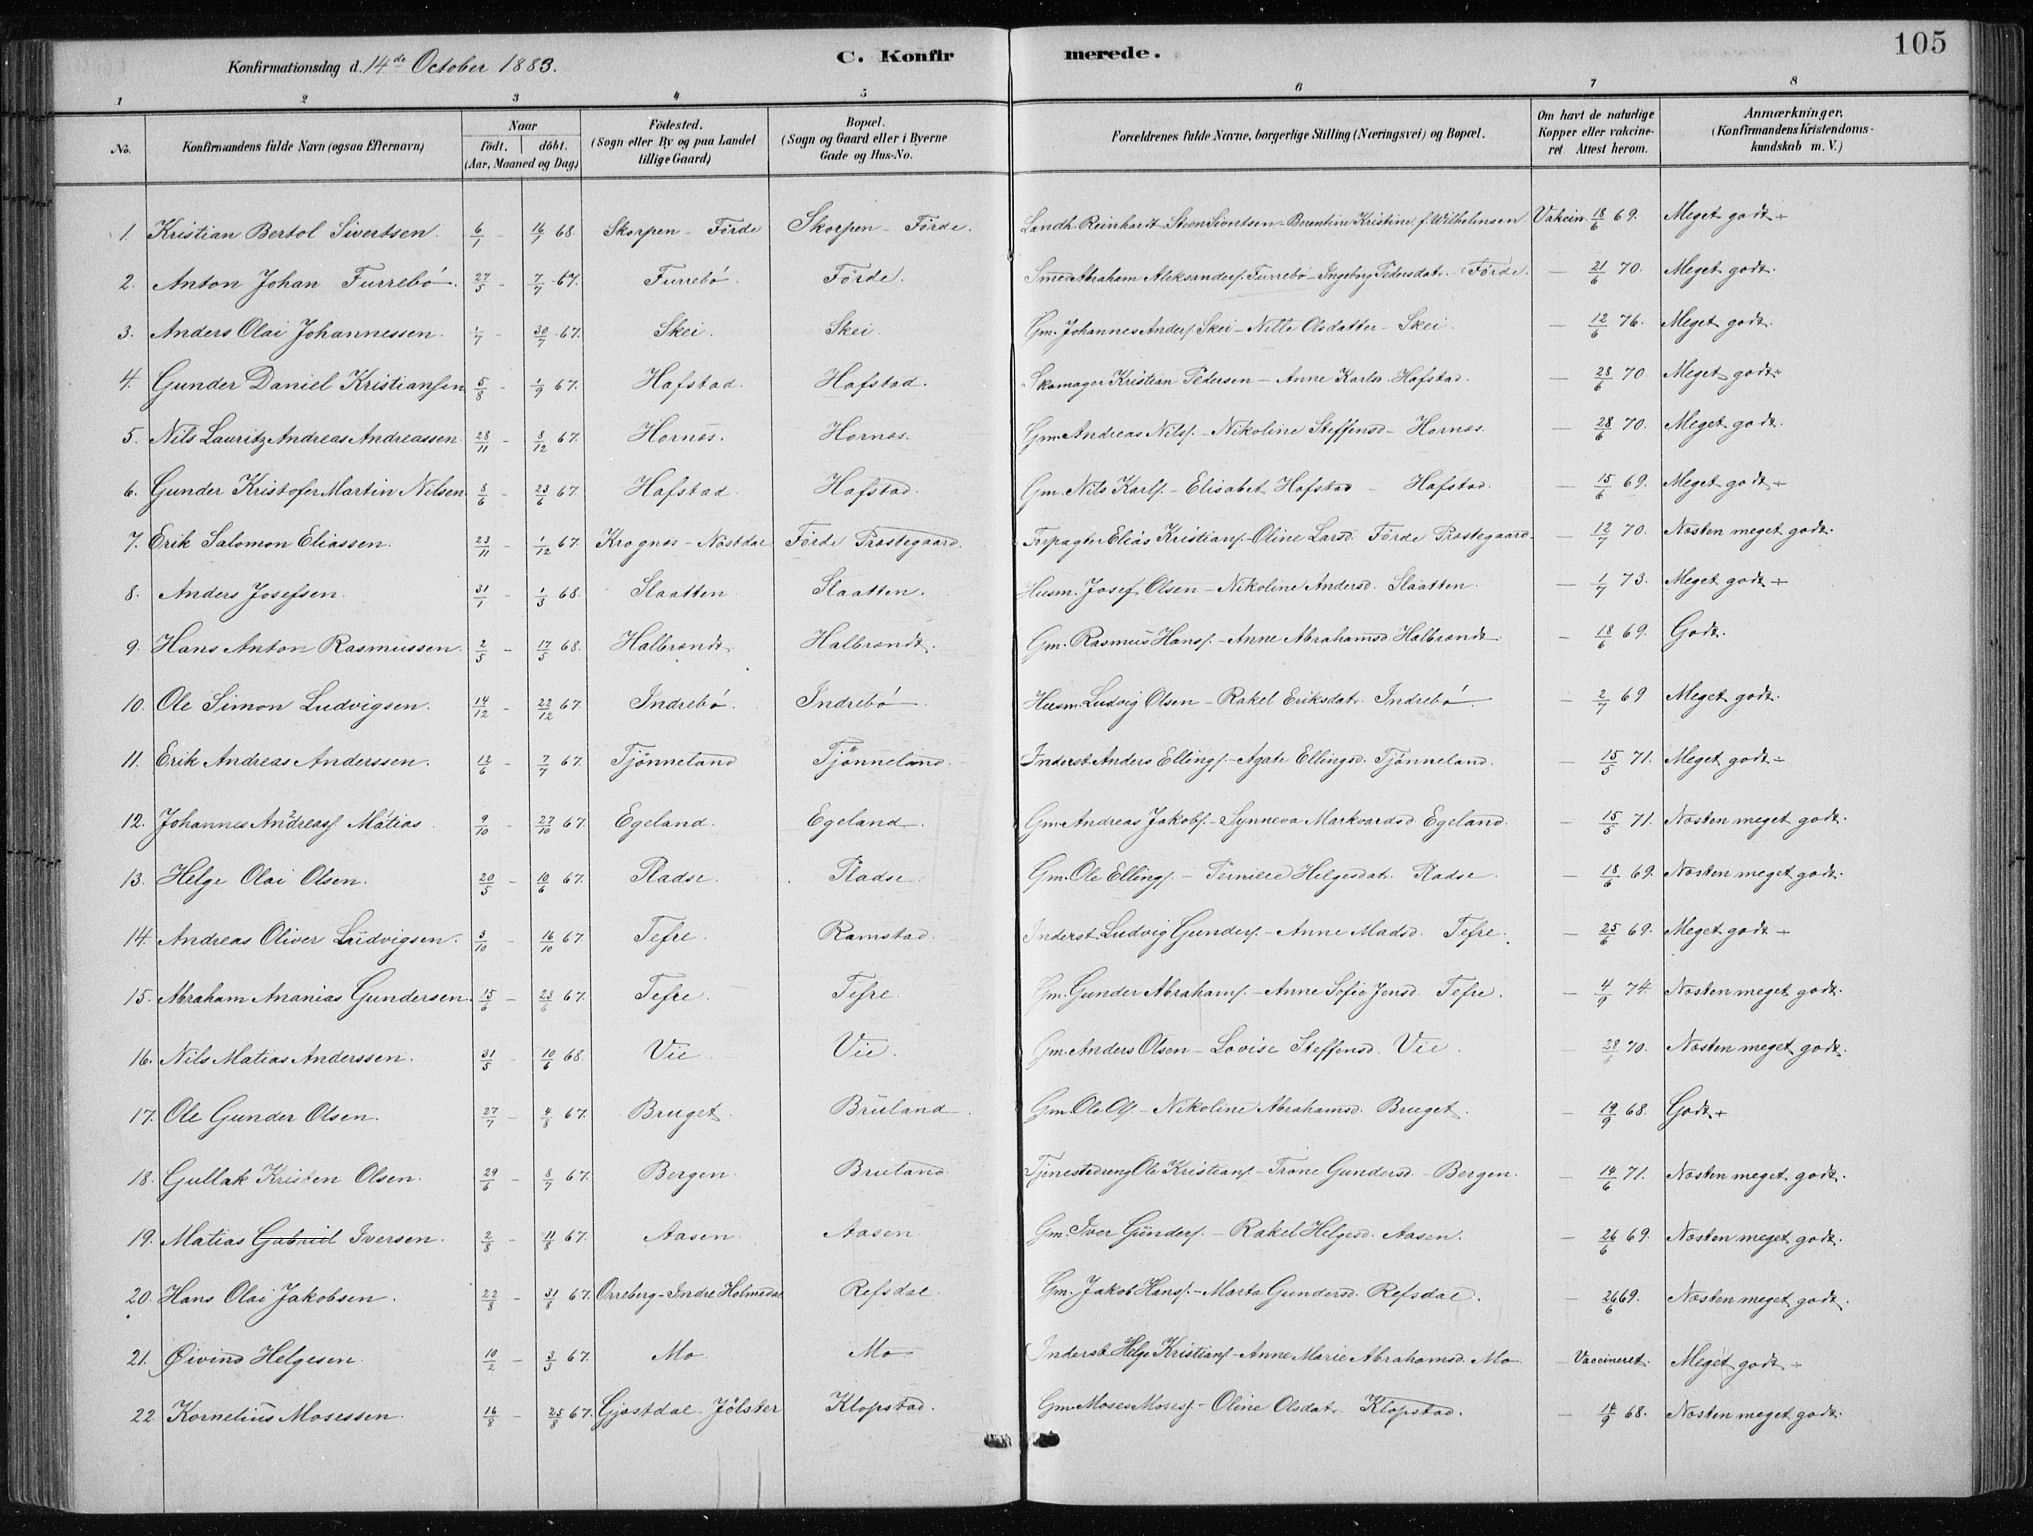 105
Konfirmationsdag d. 14de October 1883.
C. Konfirmerede.
1 2 3 4 5 6 7 8
No.
Konfirmandens fulde Navn (ogsaa Efternavn)
Naar
Født. døbt.
(Aar, Maaned og Dag)
Fødested.
(Sogn eller By og paa Landet
tillige Gaard)
Bopæl.
(Sogn og Gaard eller i Byerne
Gade og Hus-No.
Forældrenes fulde Navne, borgerlige Stilling (Næringsvei) og Bopæl.
Om havt de naturlige
Kopper eller vakcine-
ret Attest herom.
Anmærkninger.
(Konfirmandens Kristendoms-
kundskab m. V.)
1. Kristian Bertol Sivertsen. 6/1 - 16/7 68 Skorpen - Förde Skorpen - Förde. Landh. Reinhardt Steen Sivertsen - Berentine Kristine f. Wilhelmsen Vakcin. 18/6 69. Meget godt +
2. Anton Johan Furrebö. 27/5 - 7/7 67. Furrebö. Förde. Smed Abraham Aleksanders. Furrebö - Ingeborg Pedersdat. - Förde. - 21/6 70. Meget godt.
3. Anders Olai Johannessen. 1/7 - 30/7 67. Skei. Skei. Gm. Johannes Anders. Skei - Nille Olsdatter - Skei. - 12/6 76. Meget godt.
4. Gunder Daniel Kristiansen 5/8 - 1/9 67. Hafstad. Hafstad. Skomager Kristian Pedersen - Anne Karlsd. Hafstad. - 28/6 70. Meget godt +
5. Nils Lauritz Andreas Andreassen. 28/11 - 8/12 67. Hornæs. Hornæs. Gm. Andreas Nils. - Nikoline Steffensd - Hornæs. - 28/6 70. Meget godt.
6. Gunder Kristofer Martin Nilsen 8/6 - 23/6 67 Hafstad. Hafstad. Gm. Nils Karls. - Elisabet Hafstad - Hafstad. - 15/6 69. Meget godt +
7. Erik Salomon Eliassen. 23/11 - 1/12 67. Krognæs - Nöstdal Förde Præstegaard. Forpagter Elias Kristians. - Oline Larsd. Förde Præstegaard. - 12/7 70. Næsten meget godt.
8. Anders Josefsen. 31/1 - 1/3 68. Slaatten Slaatten. Husm. Josef Olsen - Nikoline Andersd. Slaatten - 1/7 73. Meget godt +
9. Hans Anton Rasmussen. 2/5 - 17/5 68. Halbrændt Halbrændt. Gm. Rasmus Hans. - Anne Abrahamsd Halbrændt. - 18/6 69. Godt.
10. Ole Simon Ludvigsen. 14/12 - 22/12 67 Indrebö. Indrebö. Husm. Ludvig Olsen - Rakel Eriksdat. Indrebö. - 2/7 69 Meget godt.
11. Erik Andreas Anderssen. 12/6 - 7/7 67. Tjønneland Tjønneland. Inderst Anders Ellings. - Agate Ellingsd. Tjønneland. - 15/5 71. Meget godt +
12. Johannes Andreas. Matias 9/10 - 27/10 67. Egeland. Egeland. Gm. Andreas Jakobs. - Synneva Markvardsd Egeland. - 15/5 71. Næsten meget godt.
13. Helge Olai Olsen. 20/5 - 10/6 67. Gm. Ole Ellings. - Helgesdat. - 18/6 69. Næsten meget godt.
14. Andreas Oliver Ludvigsen. 3/10 - 16/10 67. Tefre. Ramstad. Inderst Ludvig Gunders. - Anne Madsd. Tefre. - 25/6 69. Meget godt +
15. Abraham Ananias Gundersen. 15/6 - 23/6 67. Tefre. Tefre. Gm. Gunder Abrahams. - Anne Sofie Jensd. Tefre. - 4/9 74. Næsten meget godt.
16. Nils Matias Anderssen. 31/5 - 10/6 68. Vie. Vie. Gm. Anders Olsen - Lovise Steffensd. Vie. - 28/6 70. Næsten meget godt.
17. Ole Gunder Olsen. 27/7 - 4/8 67. Bruget. Bruland. Gm. Ole Ols. - Nikoline Abrahamsd. Bruget. - 19/9 68. Godt +
18. Gullak Kristen Olsen. 29/6 - 8/7 67. Bergen. Bruland. Tjenestedreng Ole Kristians. - Trone Gundersd. - Bergen. - 14/6 71. Næsten meget godt.
19. Matias Gabriel Iversen. 2/8 - 11/8 67. Aasen. Aasen Gm. Iver Gunders. - Rakel Helgesd. Aasen. - 26/6 69. Næsten meget godt.
20. Hans Olai Jakobsen. 22/8 - 31/8 67. Orreberg - Indre Holmedal Refsdal. Gm. Jakob Hans. - Marta Gundersd. Refsdal. - 26/6 69. Næsten meget godt.
21. Øivind Helgesen. 10/2 - 3/3 67. Mo. Mo Inderst Helge Kristians. - Anne Marie Abrahamsd. Mo - Vaccineret. Meget godt +
22. Kornelius Mosessen. 16/8 - 25/8 67. Gjæstdal. Jölster Klopstad. Gm. Moses Moses. - Oline Olsdat. Klopstad. - 14/9 68. Næsten meget godt.